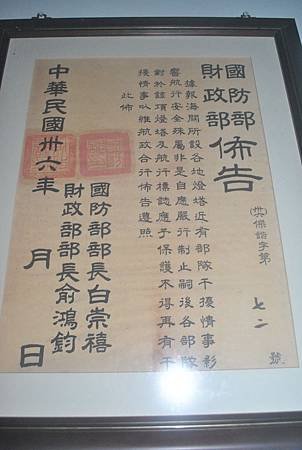 國防部
財政部
佈告
字第 七二 號
據報海關所設各地燈塔近有部隊干擾情事影
響航行安全殊屬非是自應嚴行制止嗣後各部隊
對於該項燈塔及航行標誌應予保護不得再有干
擾情事以維航政合行佈告遵照
此佈
國防部部長白崇禧
財政部部長俞鴻鈞
中華民國卅六年 月 日